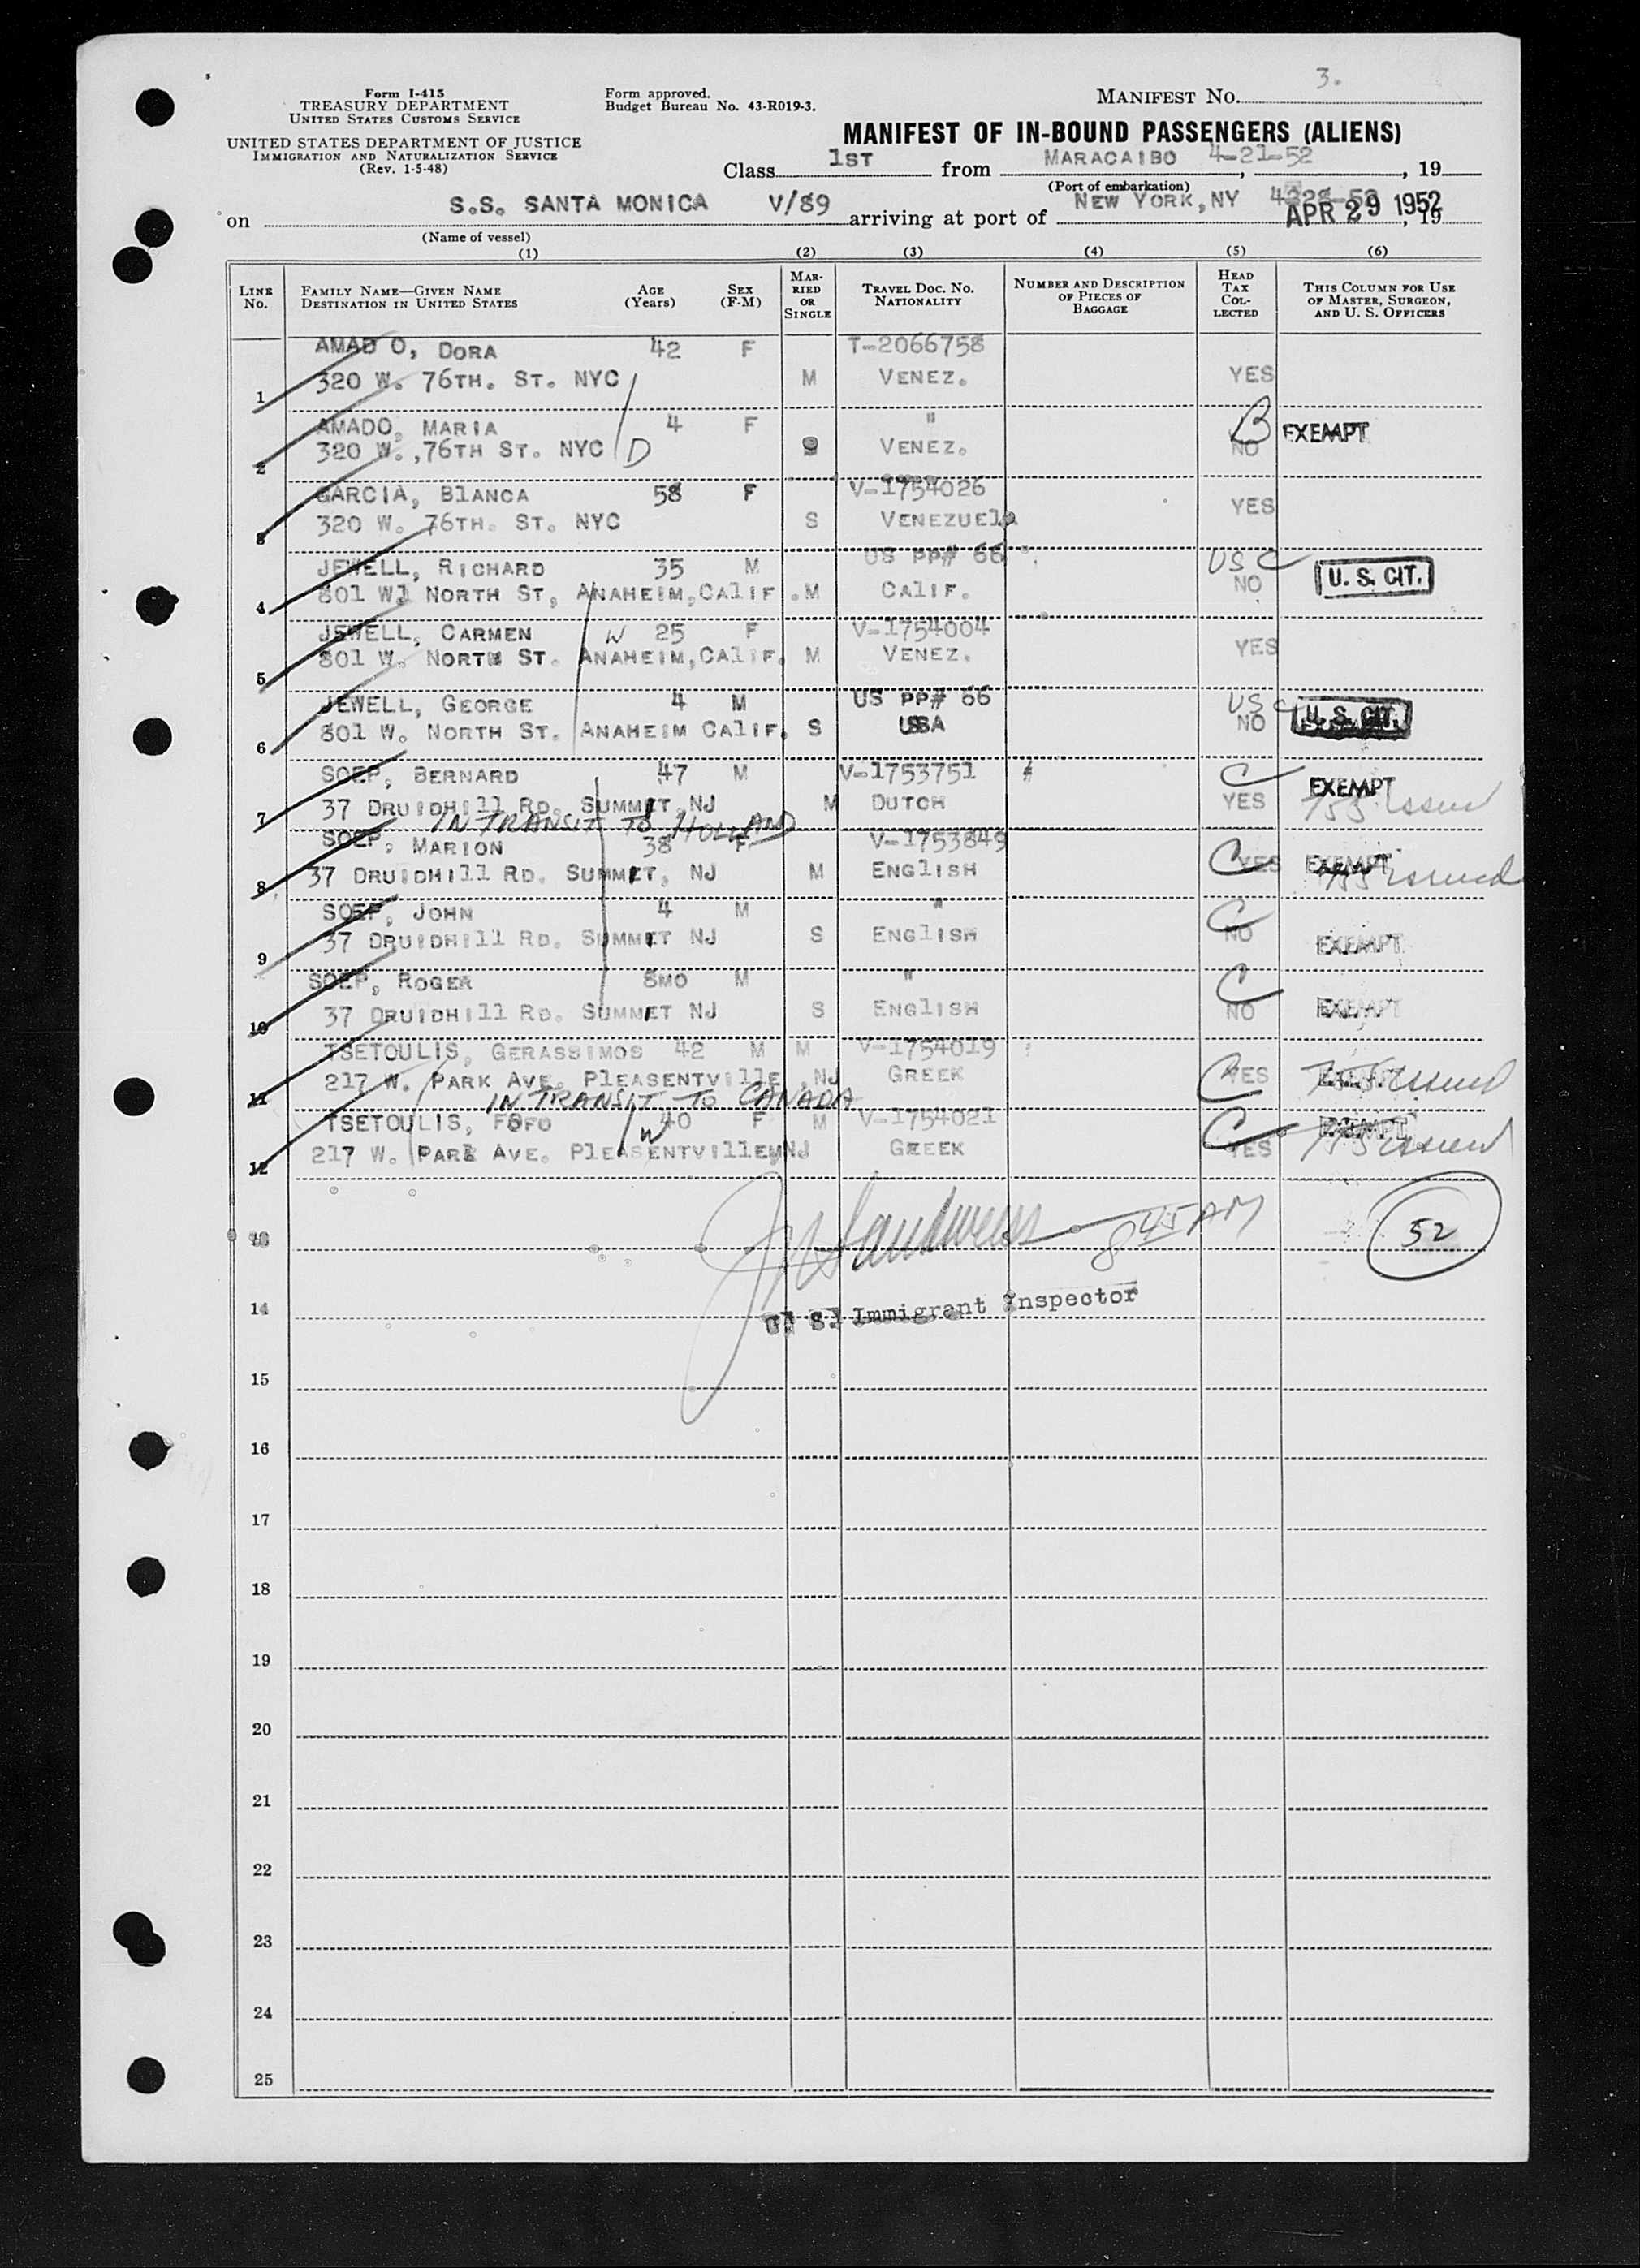 3.
Form I-415
TREASURY DEPARTMENT
UNITED STATES CUSTOMS SERVICE
UNITED STATES DEPARTMENT OF JUSTICE
IMMIGRATION AND NATURALIZATION SERVICE
(Rev. 1-5-48)
Form approved.
Budget Bureau No. 43-R019-3.
MANIFEST NO.
MANIFEST OF IN-BOUND PASSENGERS (ALIENS)
Class 1ST from MARACAIBO 4-21-52, 19
(Port of embarkation)
on S.S. SANTA MONICA V/89 arriving at port of NEW YORK, NY APR 29 1952, 19
(Name of vessel)
(1) (2) (3) (4) (5) (6)
LINE NO.
FAMILY NAME—GIVEN NAME
DESTINATION IN UNITED STATES
AGE (YEARS)
SEX (F-M)
MAR-RIED OR SINGLE
TRAVEL DOC. NO. NATIONALITY
NUMBER AND DESCRIPTION OF PIECES OF BAGGAGE
HEAD TAX COL-LECTED
THIS COLUMN FOR USE OF MASTER, SURGEON, AND U. S. OFFICERS
AMAD O, DORA 42 F T-2066758
1 320 W. 76TH. ST. NYC M VENEZ. YES
AMADO, MARIA 4 F " B EXEMPT
2 320 W.,76TH ST. NYC D VENEZ. NO
GARCIA, BlANCA 58 F V-1754026
3 320 W. 76TH. ST. NYC S VENEZUElA YES
JEWELL, RICHARD 35 M US PP# 66 USC U. S. CIT.
4 801 W. NORTH ST, ANAHEIM,CAlIF. M CAlIF. NO
JEWELL, CARMEN W 25 F V-1754004
5 801 W. NORTH ST. ANAHEIM,CAlIF. M VENEZ. YES
JEWELL, GEORGE 4 M US PP# 66 USC U. S. CIT.
6 801 W. NORTH ST. ANAHEIM CAlIF. S USA NO
SOEP, BERNARD 47 M V-1753751 C EXEMPT
7 37 DRUIDHIll RD. SUMMIT NJ M DUTCH YES issued
IN TRANSIT TO HOLLAND
SOEP, MARION 38 F V-1753849 C EXEMPT
8 37 DRUIDHIll RD. SUMMIT, NJ M ENGlISH YES issued
SOEP, JOHN 4 M " C
9 37 DRUIDHIll RD. SUMMIT NJ S ENGlISH NO EXEMPT
SOEP, ROGER 8MO M " C
10 37 DRUIDHIll RD. SUMMIT NJ S ENGlISH NO EXEMPT
TSETOULIS, GERASSIMOS 42 M M V-1754019
11 217 W. PARK AVE. PlEASENTVIlle, NJ GREEK C YES issued
IN TRANSIT TO CANADA
TSETOULIS, FOFO W 40 F M V-1754021 C EXEMPT
12 217 W. PARK AVE. PlEASENTVIlle NJ GREEK YES issued
13
8 45 AM
52
U. S. Immigrant Inspector
14
15
16
17
18
19
20
21
22
23
24
25